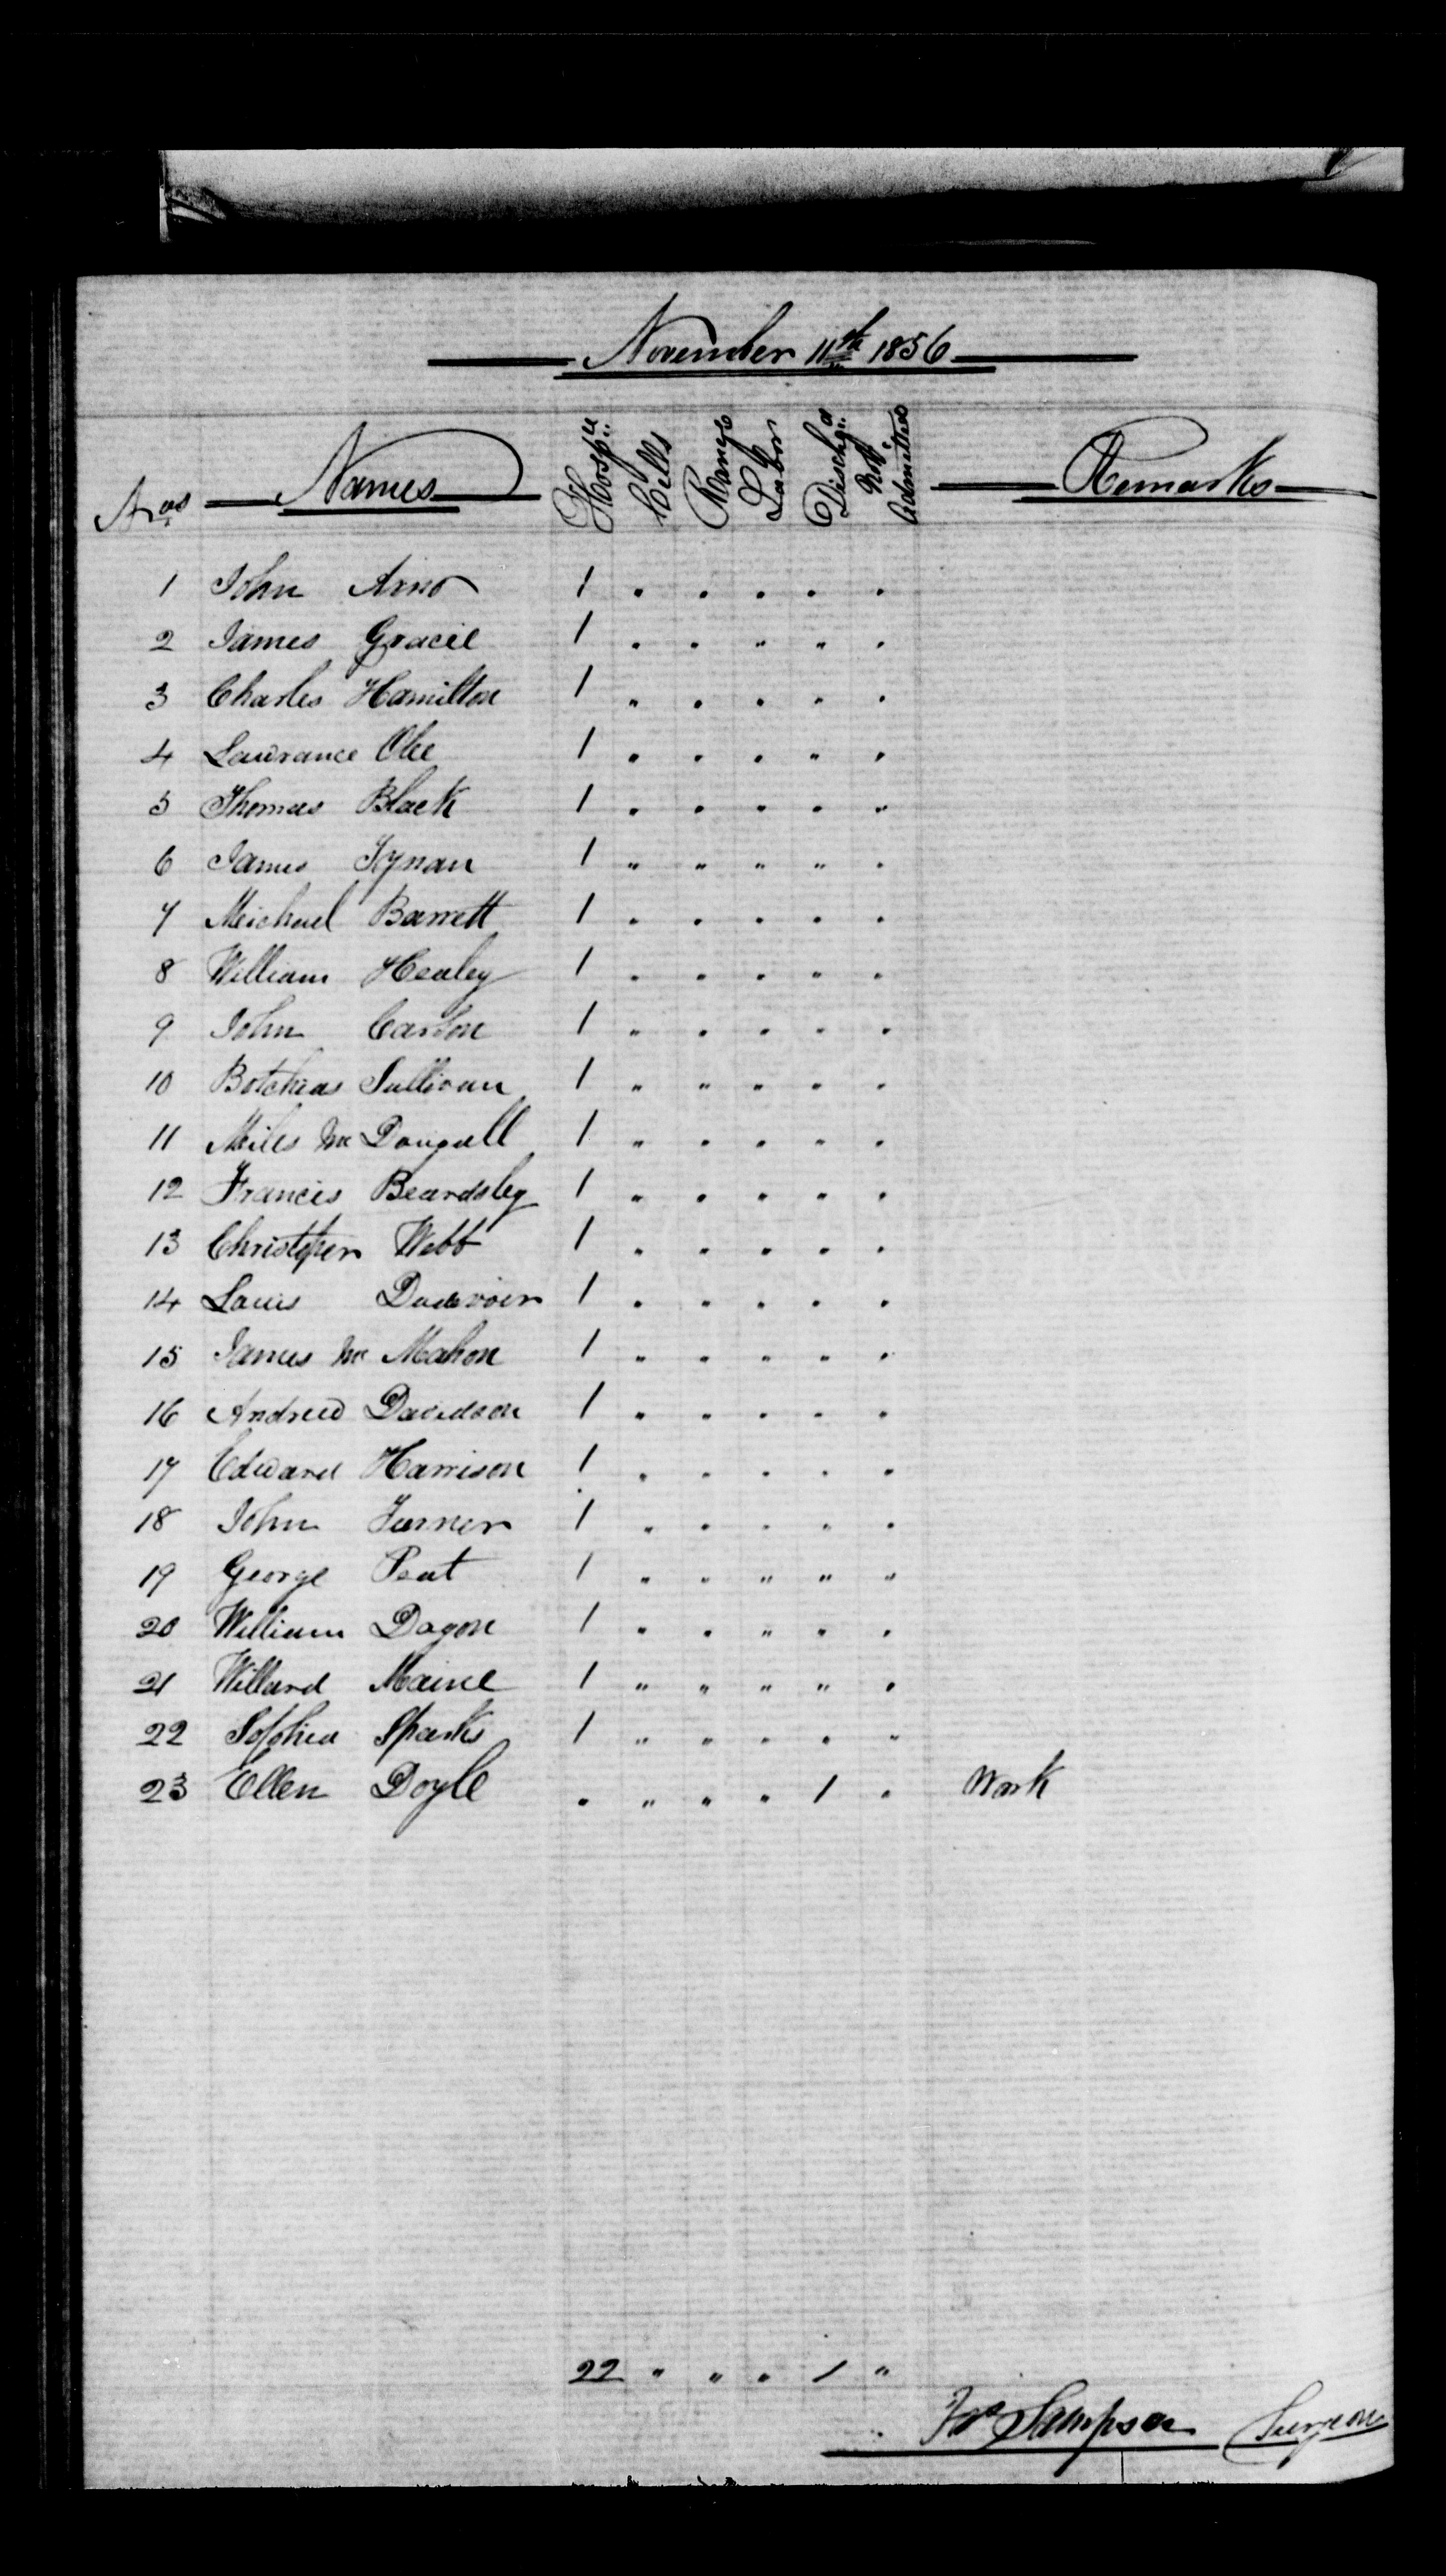 November 11th 1856
Nos Names Hospl Cells Range Labor Dischgd Not Admitted Remarks
1 John Arno 1 " " " " "
2 James Gracie 1 " " " " "
3 Charles Hamilton 1 " " " " "
4 Lawrance 1 " " " " "
5 Thomas Black 1 " " " " "
6 James Tynan 1 " " " " "
7 Meichael Barrett 1 " " " " "
8 William Healey 1 " " " " "
9 John 1 " " " " "
10 Sullivan 1 " " " " "
11 Miles Mc Dougall 1 " " " " "
12 Francis Beardsley 1 " " " " "
13 Christopher Webb 1 " " " " "
14 Louis 1 " " " " "
15 James Mc Mahon 1 " " " " "
16 Andrew Davidson 1 " " " " "
17 Edward Harrison 1 " " " " "
18 John Turner 1 " " " " "
19 George Peat 1 " " " " "
20 William Dagon 1 " " " " "
21 Willard Maine 1 " " " " "
22 Sophia Sparks 1 " " " " "
23 Ellen Doyle " " " " 1 " Work
22 " " " 1 "
Jas Sampson Surgeon